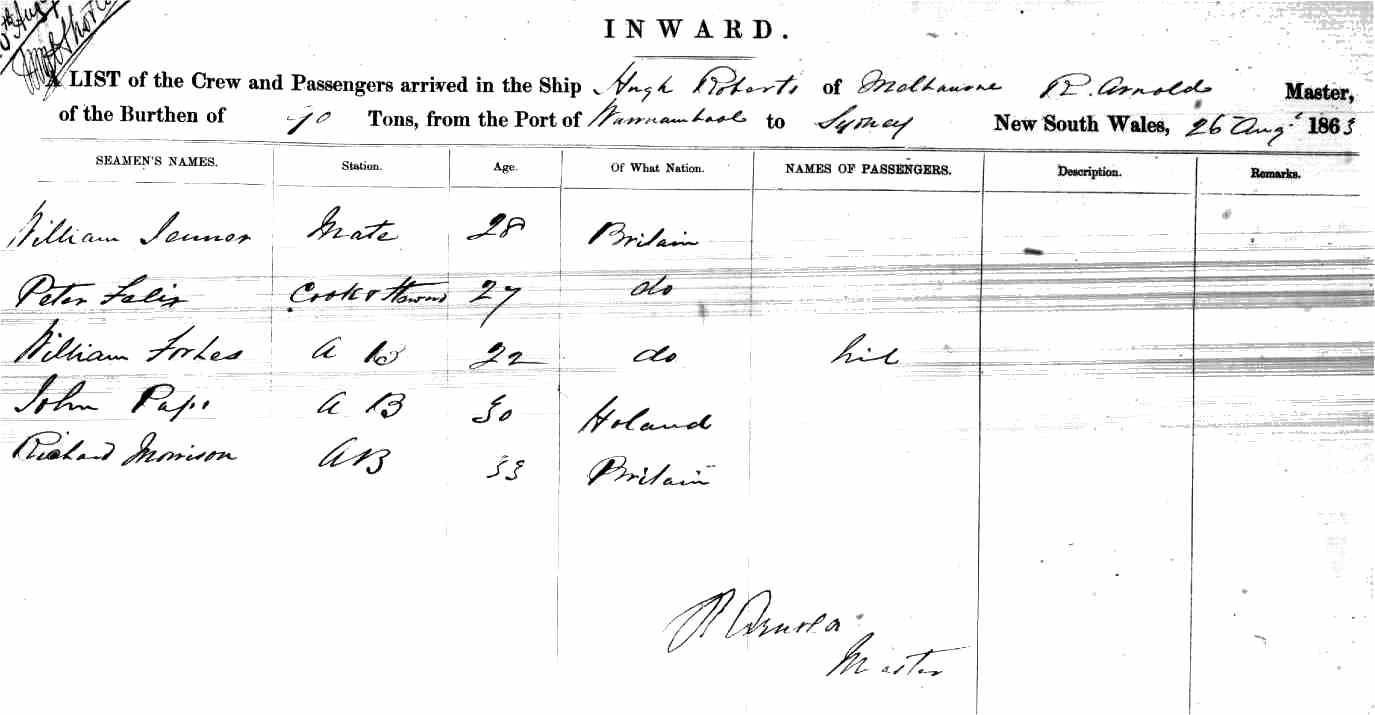 INWARD.
A LIST of the Crew and Passengers arrived in the Ship Hugh Roberts of Melbourne R. Arnold Master,
of the Burthen of 90 Tons, from the Port of Warrnambool to Sydney New South Wales, 26 Augt 1863
SEAMEN'S NAMES. Station. Age. Of What Nation. NAMES OF PASSENGERS. Description. Remarks.
William Jenner Mate 28 Britain
Peter Cook & Steward 27 do
William Forbes A B 22 do nil
John Pape A B 30 Holand
Richard Morrison AB 33 Britain
R Arnold
Master